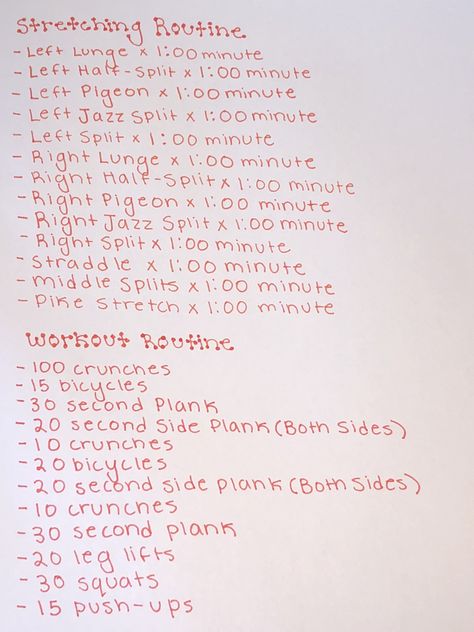 Stretching Routine
- Left Lunge x 1:00 minute
- Left Half-Split x 1:00 minute
- Left Pigeon x 1:00 minute
- Left Jazz Split x 1:00 minute
- Left Split x 1:00 minute
- Right Lunge x 1:00 minute
- Right Half-Split x 1:00 minute
- Right Pigeon x 1:00 minute
- Right Jazz Split x 1:00 minute
- Right Split x 1:00 minute
- Straddle x 1:00 minute
- middle Splits x 1:00 minute
- Pike Stretch x 1:00 minute
Workout Routine
- 100 crunches
- 15 bicycles
- 30 second Plank
- 20 second Side Plank (Both Sides)
- 10 crunches
- 20 bicycles
- 20 second side plank (Both Sides)
- 10 crunches
- 30 second plank
- 20 leg lifts
- 30 squats
- 15 push-ups